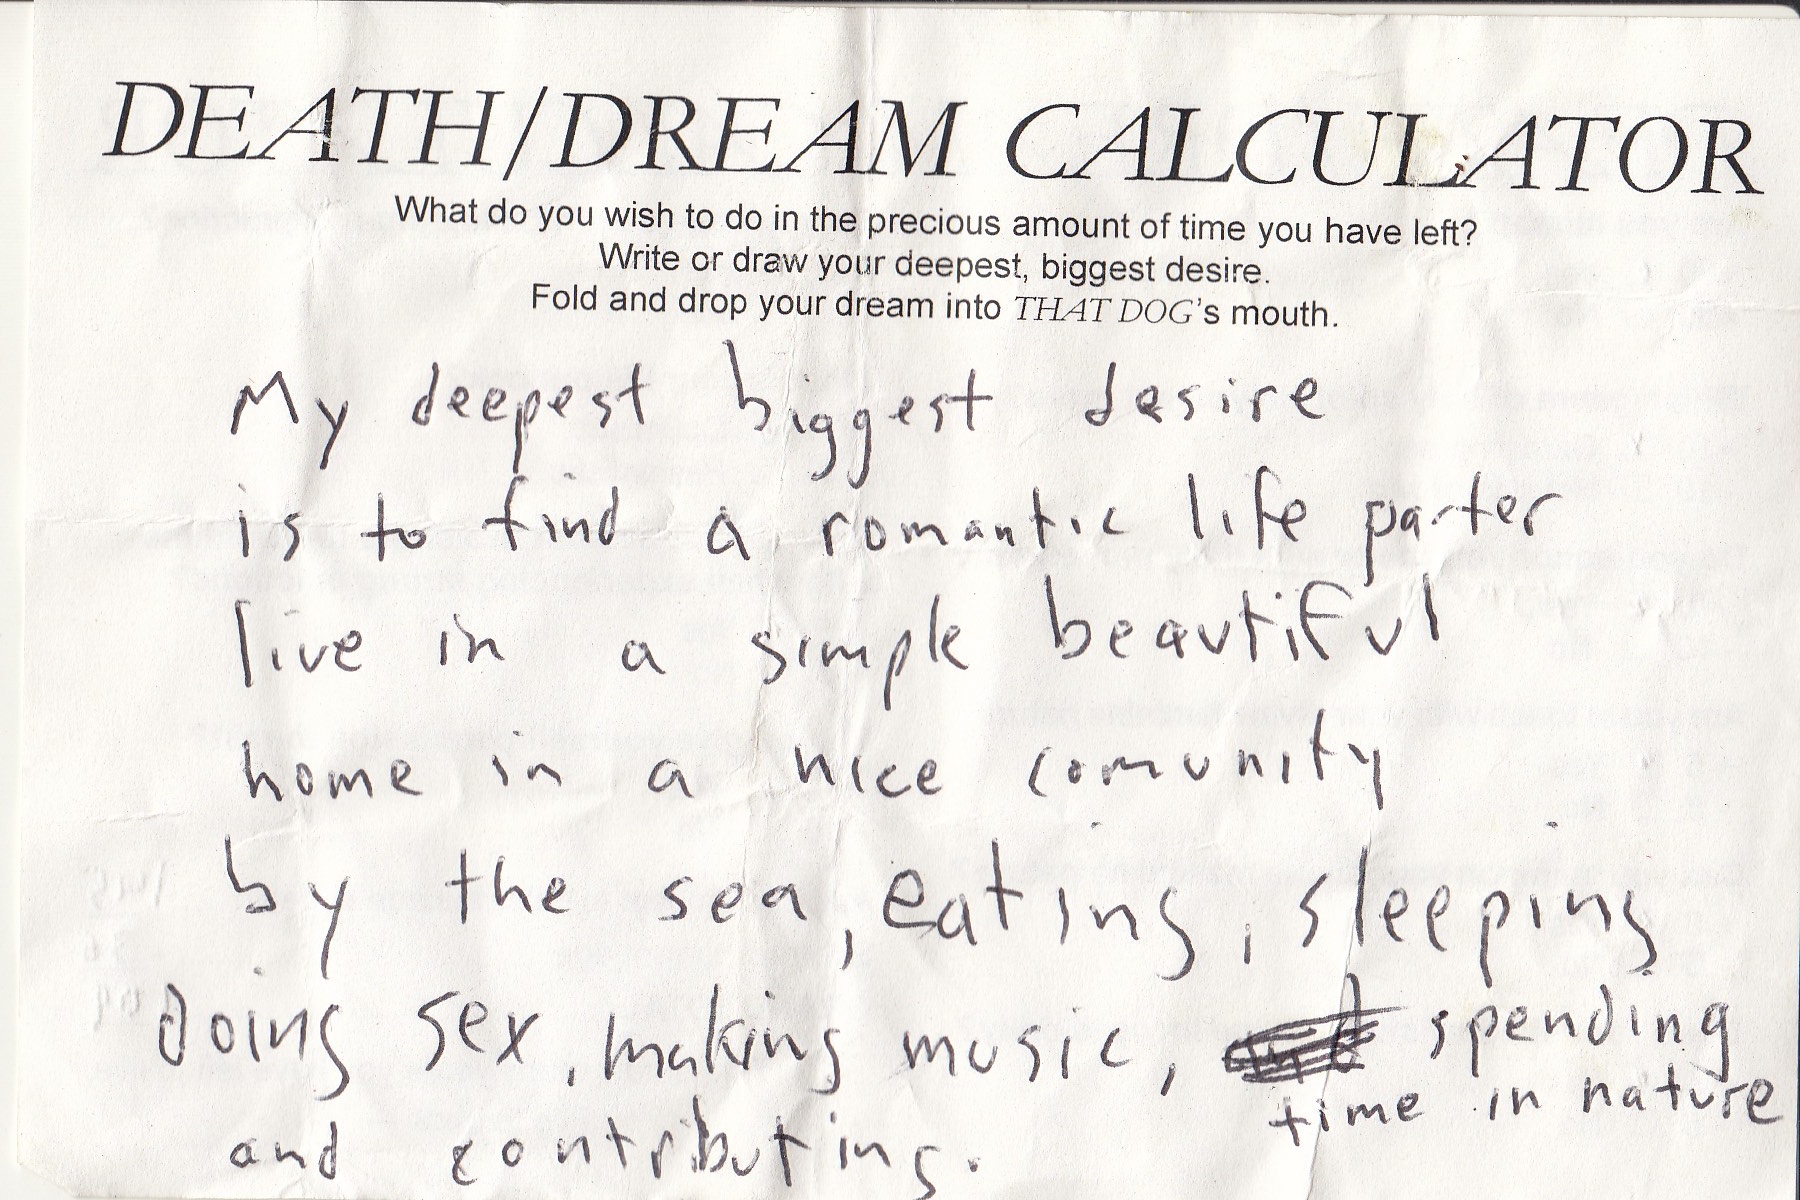 DEATH/DREAM CALCULATOR
What do you wish to do in the precious amount of time you have left?
Write or draw your deepest, biggest desire.
Fold and drop your dream into THAT DOG's mouth.
My deepest biggest desire
is to find a romantic life parter
live in a simple beautiful
home in a nice comunity
by the sea, eating, sleeping
Doing sex, making music, spending
time in nature
and contributing.